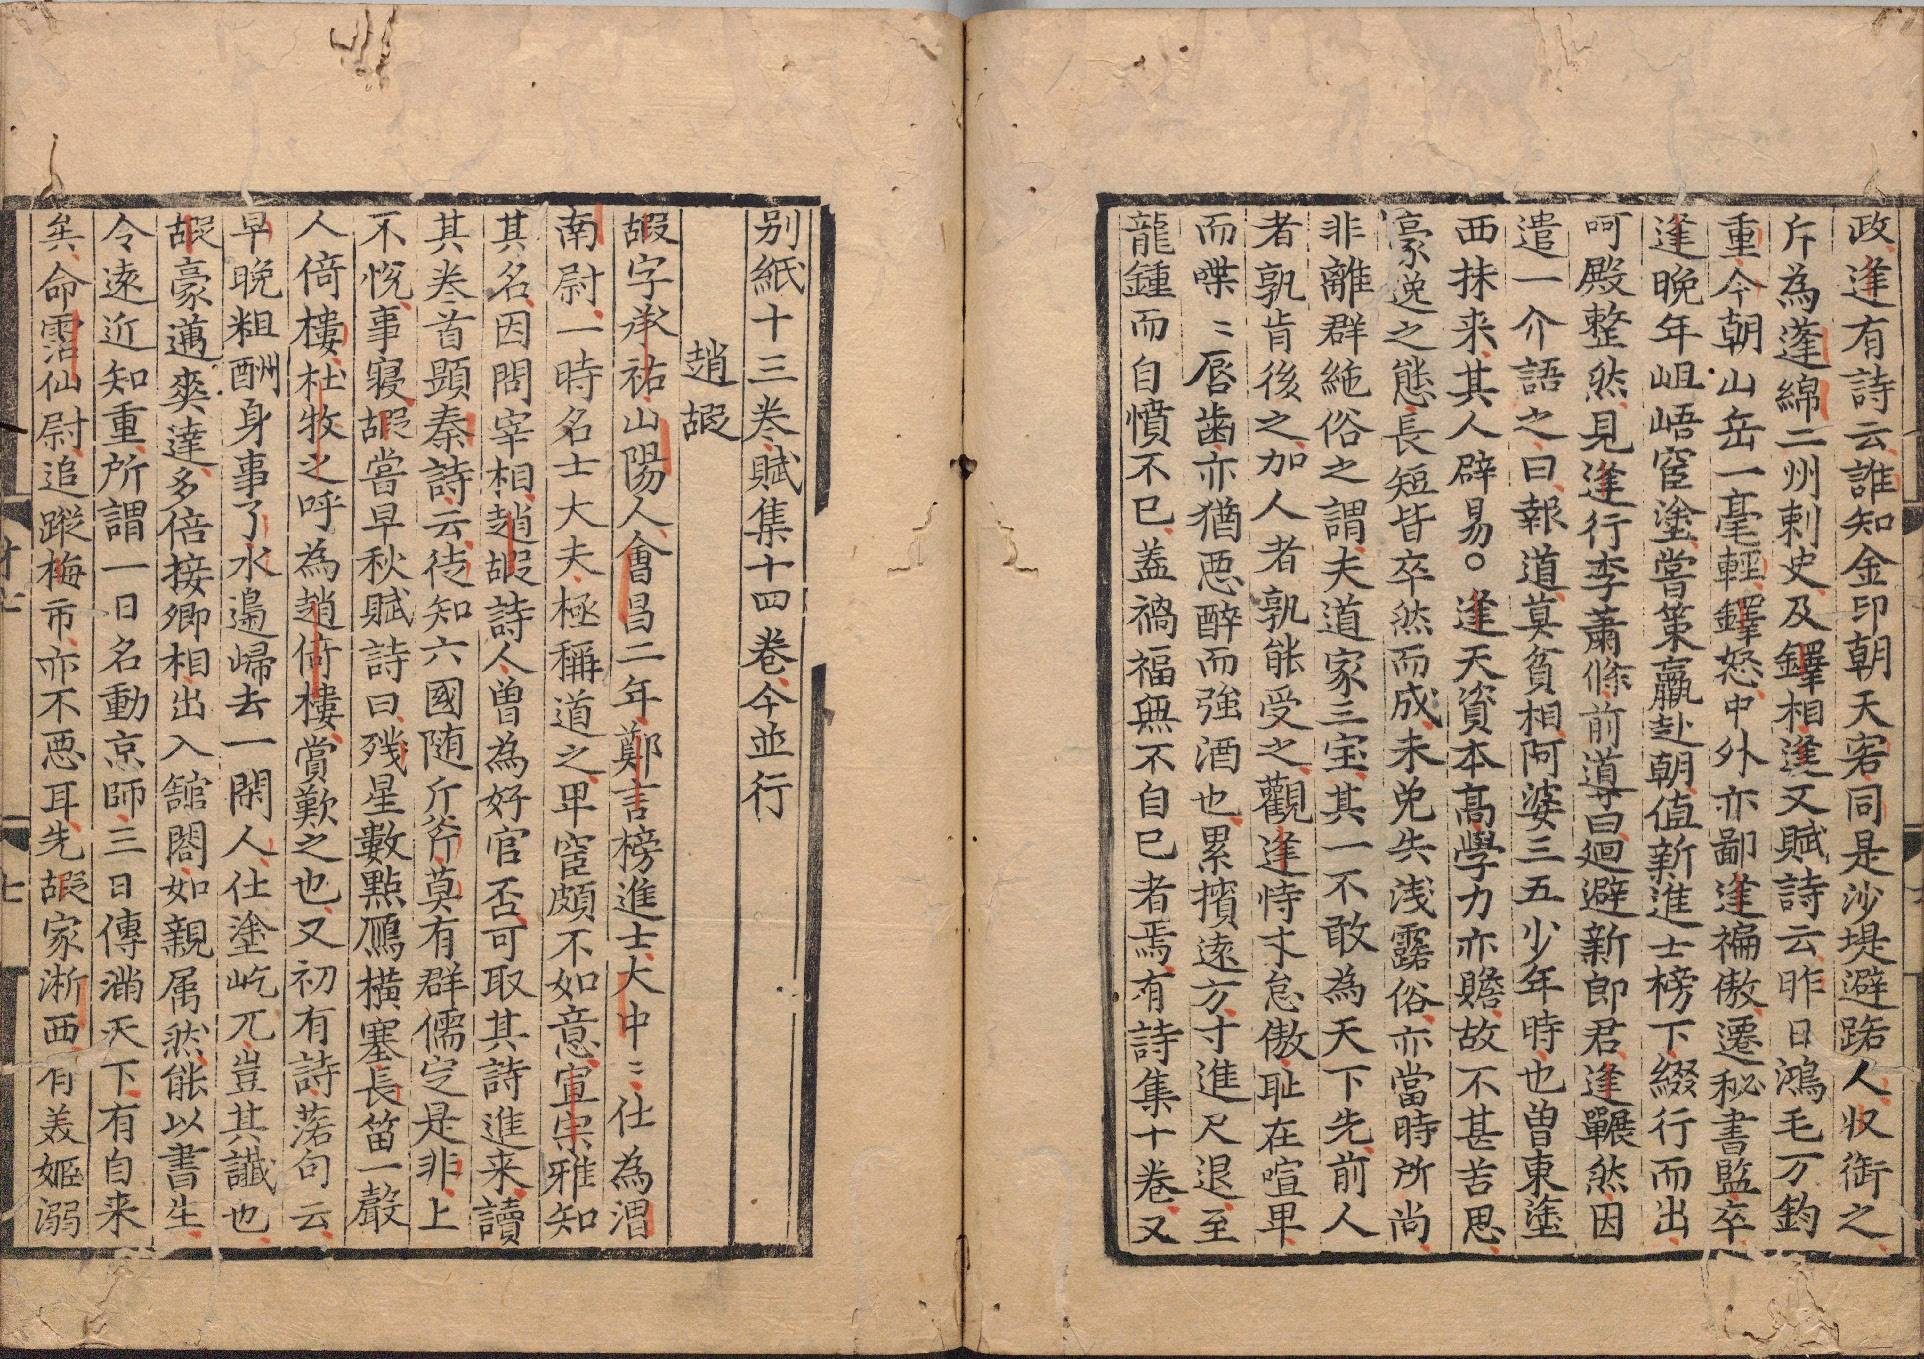 政逢有詩云誰知金印朝天客同是沙堤避路人収銜之
斥為蓬綿二州刺史及鐸相逢又賦詩云昨日鴻毛万鈞
重今朝山岳一毫輕鐸怒中外亦鄙逢褊傲遷秘書監卒
逢晚年岨峿宦塗嘗策羸赴朝値新進士榜下綴行而出
呵殿整然見逢行李蕭條前導曰廻避新郎君逢囅然因
遣一介語之曰報道莫貧相阿婆三五少年時也曽東塗
西抹来其人辟易○逢天資本高學力亦贍故不甚苦思
豪逸之態長短皆卒然而成未免失浅露俗亦當時所尚
非離群絶俗之謂夫道家三宝其一不敢為天下先前人
者孰肯後之加人者孰能受之觀逢恃才怠傲耻在喧卑
而喋〻唇歯亦猶悪醉而強酒也累擯遠方寸進尺退至
龍鍾而自憤不已盖禍福無不自已者焉有詩集十卷又
别紙十三卷賦集十四卷今並行
趙嘏
嘏字承祐山陽人會昌二年鄭言榜進士大中〻仕為渭
南尉一時名士大夫極稱道之卑宦頗不如意宣宗雅知
其名因問宰相趙嘏詩人曽為好官否可取其詩進来讀
其卷首題秦詩云徒知六國随斤斧莫有群儒定是非上
不恱事寝嘏嘗早秋賦詩曰残星數點鴈横塞長笛一聲
人倚樓杜牧之呼為趙倚樓賞歎之也又初有詩落句云
早晚粗酬身事了水邊歸去一閑人仕塗屹兀豈其讖也
嘏豪邁爽達多倍接卿相出入舘閣如親属然能以書生
令遠近知重所謂一日名動京師三日傳満天下有自来
矣命霑仙尉追蹤梅市亦不悪耳先嘏家浙西有美姬溺